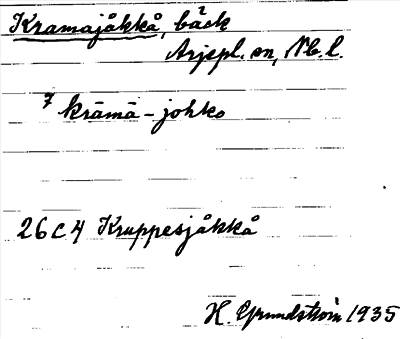 Kramajåkkå, bäck
Arjspl. sn, Nb. l.
7 krāmā-johko
26 C 4 Kruppesjåkkå
H. Grundström 1935